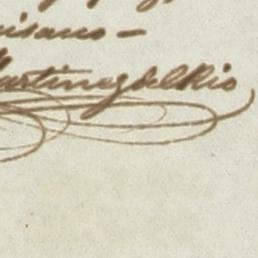 uisano—
Martinez del Rio